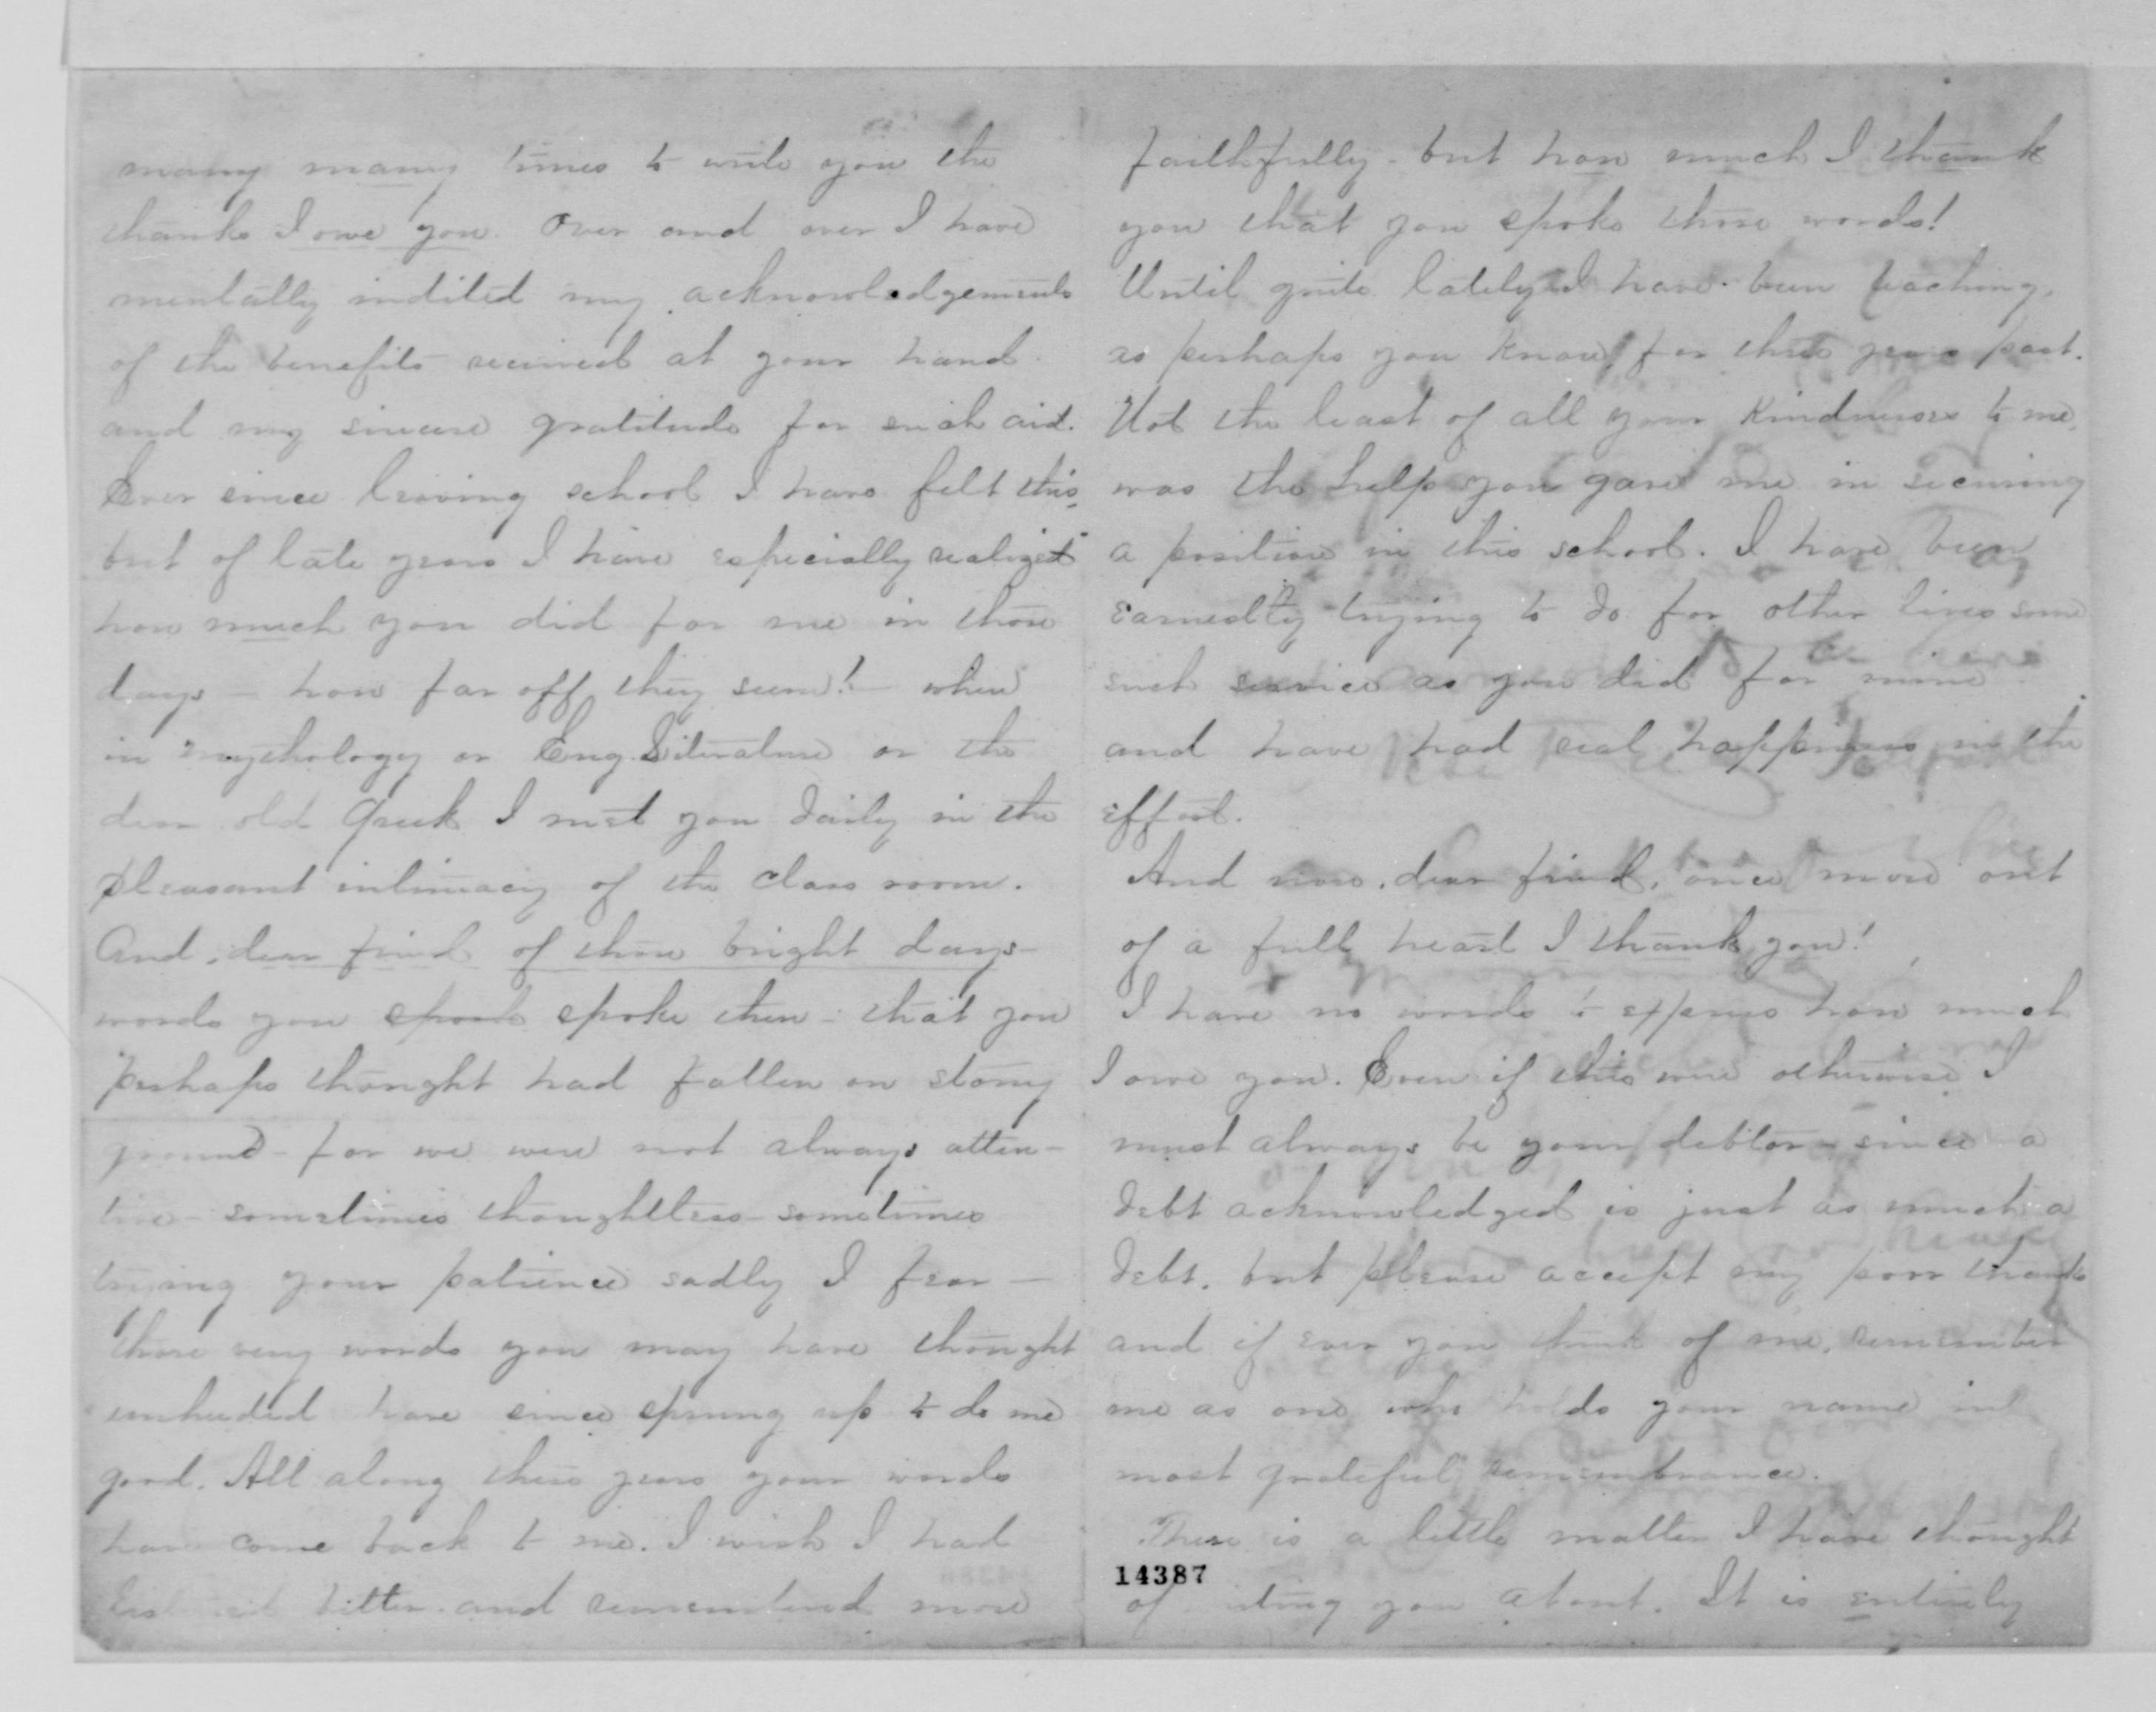 many many times to write you the
thanks I owe you. Over and over I have
mentally indited my acknowledgements
of the benefits received at your hand
and my sincere gratitude for such aid.
Ever since leaving school I have felt this,
but of late years I have especially realized
how much you did for me in those
days – how far off they seem! – when
in mythology or Eng. Literature or the
dear old Greek I met you daily in the
pleasant intimacy of the class room.
And, dear friend of those bright days –
words you spook spoke then – that you
perhaps thought had fallen on stony
ground – for we were not always atten-
tive – sometimes thoughtless – sometimes
trying your patience sadly I fear –
those very words you may have thought
unheeded have since sprung up to do me
good. All along these years your words
have come back to me. I wish I had
listened better and remembered more
faithfully – but how much I thank
you that you spoke those words!
Until quite lately I have been teaching,
as perhaps you know, for three years past.
Not the least of all your kindnesses to me,
was the help you gave me in securing
a position in this school. I have been
earnestly trying to do for other lives some
such service as you did for mine
and have had real happiness in the
effort.
And now, dear friend, once more out
of a full heart I thank you!
I have no words to express how much
I owe you. Even if this were otherwise I
must always be your debtor – since a
debt acknowledged is just as much a
debt. but please accept my poor thanks
and if ever you think of me, remember
me as one who holds your name in
most grateful remembrance.
There is a little matter I have thought
14387
of you about. It is entirely